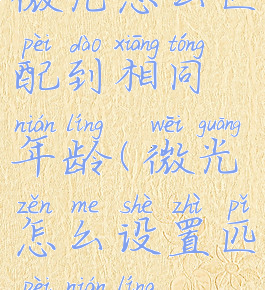 微光怎么匹
pèi dào xiāng tóng
配到相同
nián líng wēi guāng
年龄(微光
zěn me shè zhì pǐ
怎么设置匹
pèi nián líng